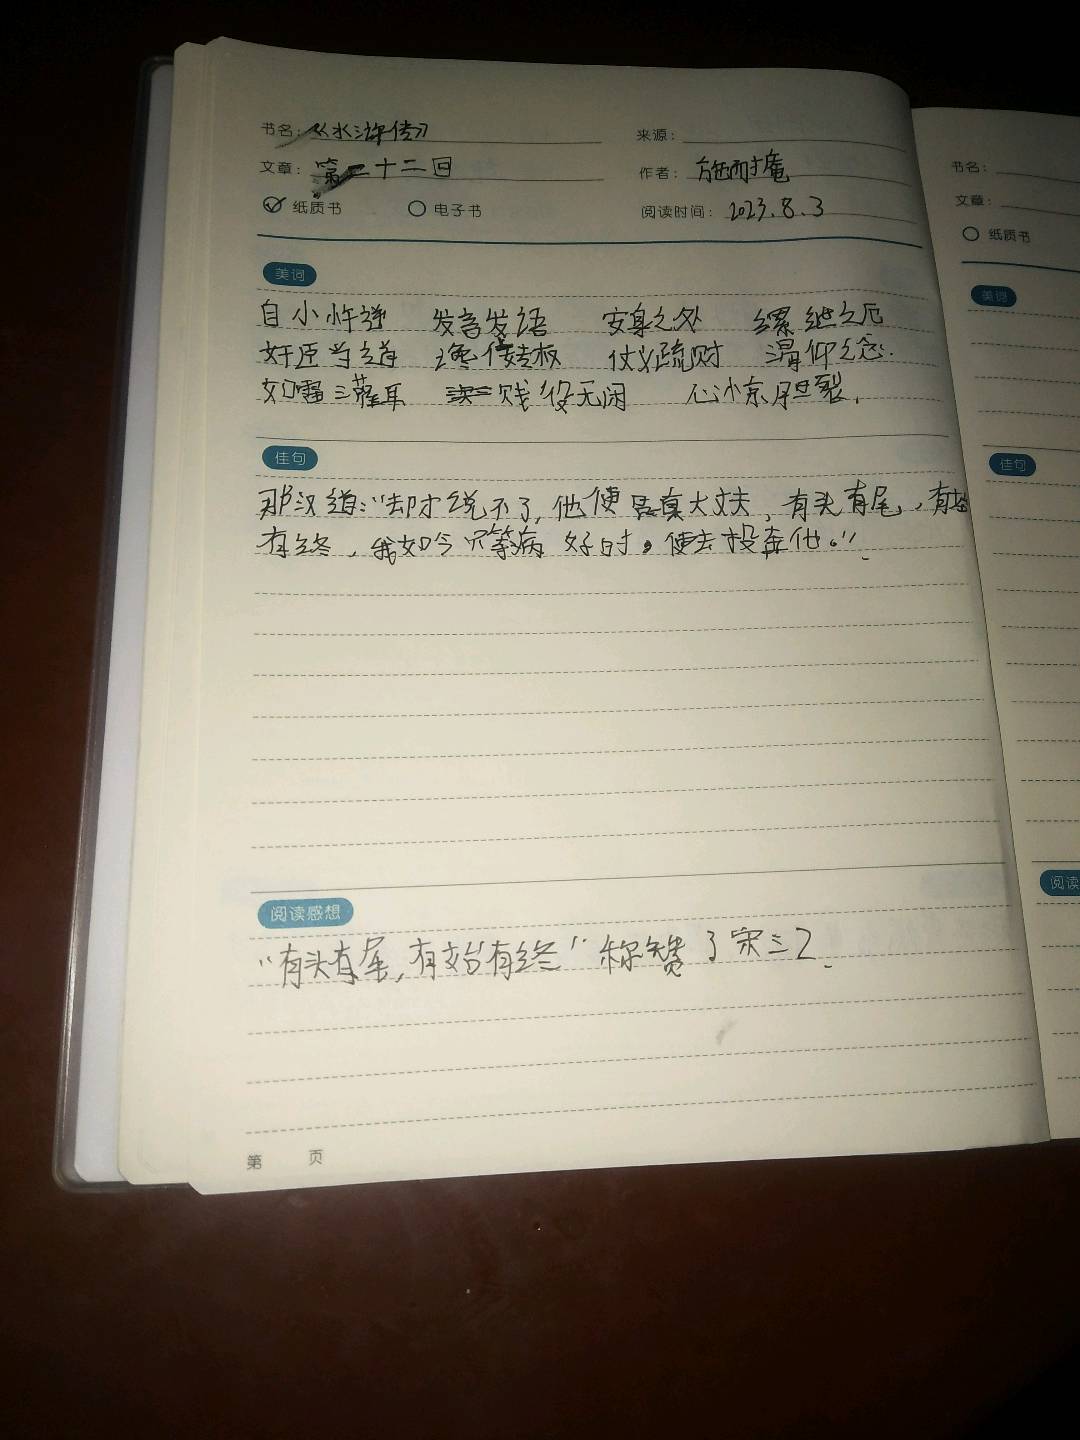 书名：《水浒传》 来源：
文章：第二十二回 作者：施耐庵
纸质书 电子书 阅读时间：2023.8.3
美词
自小忤逆 发言发语 安身之处 缧绁之厄
奸臣当道 谗佞专权 仗义疏财 渴仰之念.
如雷灌耳 贱役无闲 心惊胆裂.
佳句
那汉道："却才说不了，他便是真大丈夫，有头有尾，有始
有终，我如今只等病好时，便去投奔他。"
阅读感想
"有头有尾，有始有终"称赞了宋江.
第 页
书名：
文章：
纸质书
美词
佳句
阅读